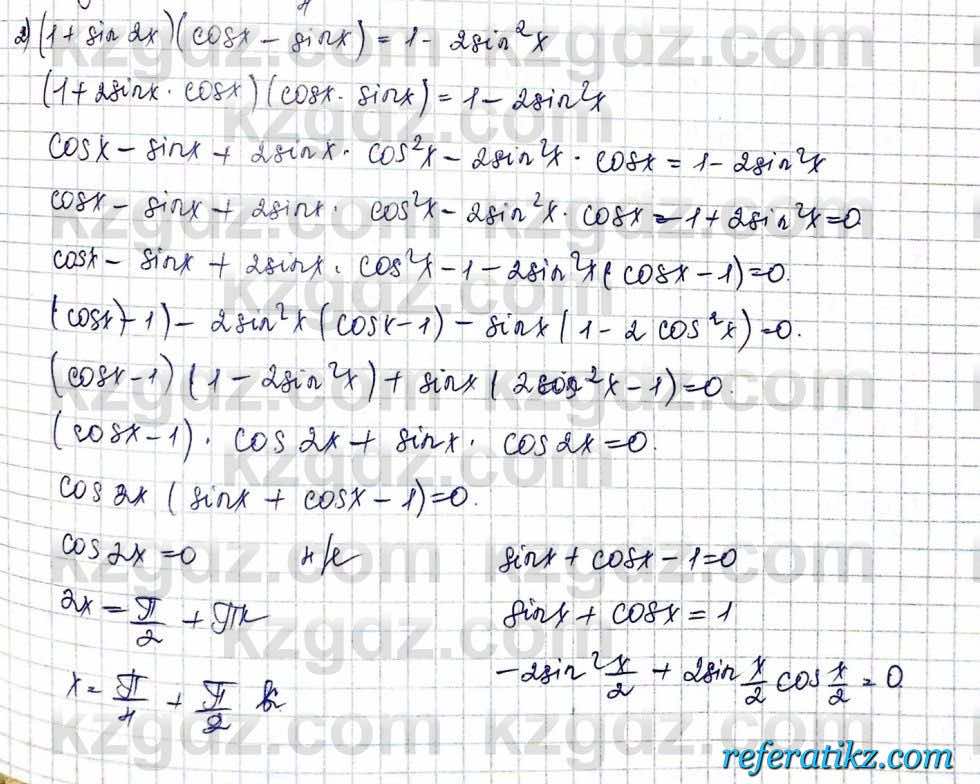 2) (1 + sin 2x)(cosx − sinx) = 1 − 2sin²x
(1 + 2sinx · cosx)(cosx · sinx) = 1 − 2sin²x
cosx − sinx + 2sinx · cos²x − 2sin²x · cosx = 1 − 2sin²x
cosx − sinx + 2sinx · cos²x − 2sin²x · cosx − 1 + 2sin²x = 0
cosx − sinx + 2sinx · cos²x − 1 − 2sin²x(cosx − 1) = 0.
(cosx) − 1) − 2sin²x(cosx − 1) − sinx(1 − 2cos²x) = 0.
(cosx − 1)(1 − 2sin²x) + sinx(2cos²x − 1) = 0.
(cosx − 1) · cos 2x + sinx · cos 2x = 0.
cos 2x (sinx + cosx − 1) = 0.
cos 2x = 0
2x = π/2 + πk
x = π/4 + π/2 k
sinx + cosx − 1 = 0
sinx + cosx = 1
−2sin² x/2 + 2sin x/2 cos x/2 = 0.
kzgdz.com
referatikz.com